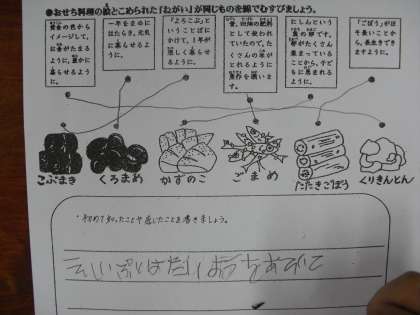 ●おせち料理の絵とこめられた「ねがい」が同じものを線でむすびましょう。
黄金の色から
イメージして、
に金がたまる
ように、豊かに
暮らせるように。
一年をまめに
はたらき、元気
に暮らせるよう
に。
「よろこぶ」という
ことばに
かけて、1年が
楽しく暮らせる
ように。
昔、田畑の肥料
として使われ
ていたので、た
くさんの米が
とれるように
豊作を願います。
にしんという
魚の卵です。
卵がたくさん
集まっている
ことから、子ど
もに恵まれる
ように。
「ごぼう」がほ
そ長いことか
ら、長生きでき
ますように。
こぶまき
くろまめ
かずのこ
ごまめ
たたきごぼう
くりきんとん
・初めて知ったことや感じたことを書きましょう。